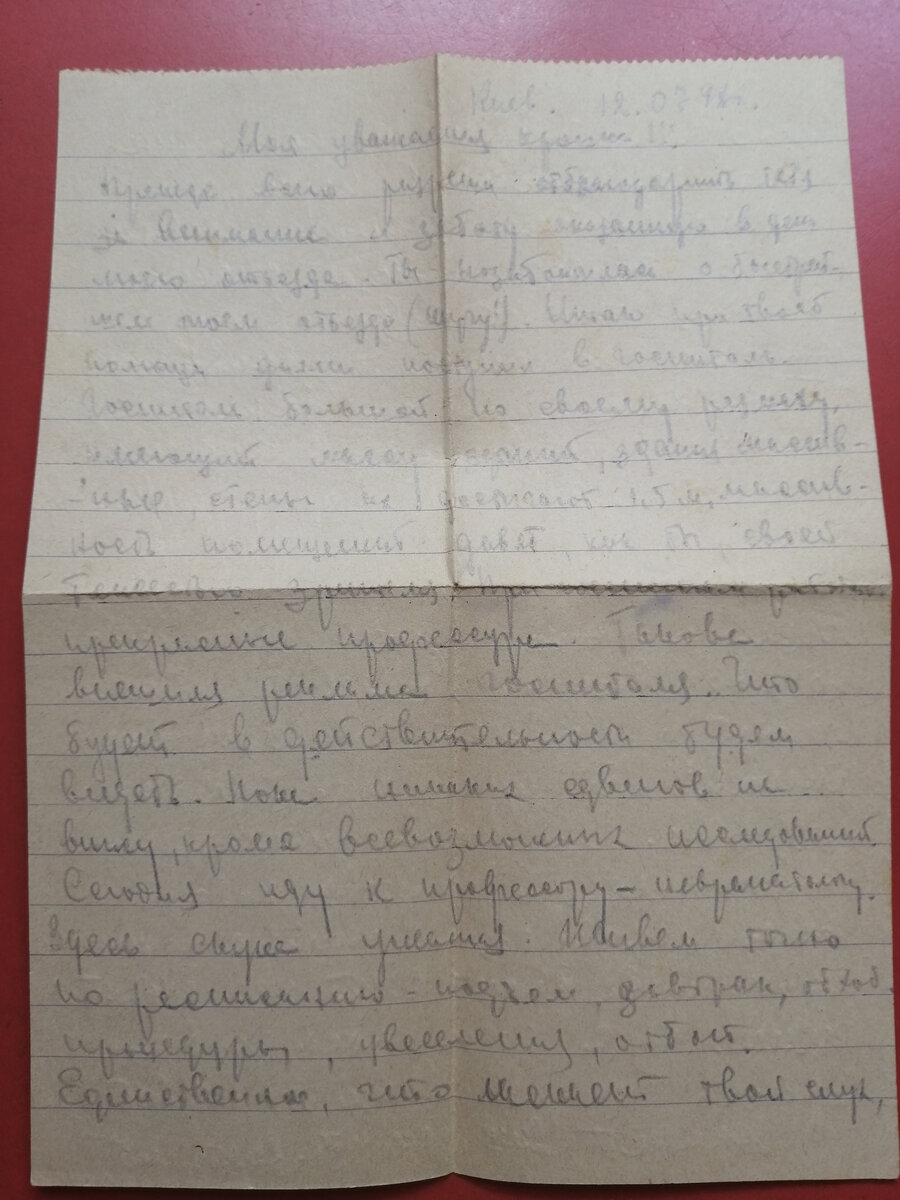 Киев. 12.07.48г.
Моя уважаемая крошк !!!
Прежде всего разреши отблагодарить тебя
за внимание и заботу оказанную в день
моего отъезда. Ты позаботилась о быстрей-
шем моем отъезде (шучу!). Итак при твоей
помощи удачно поступил в госпиталь.
Госпиталь большой по своему размеру,
имеющий массу зданий, здания массив-
-ные, стены их достигают 1,5 м, массив-
ность помещений давят, как бы, своей
тяжестью зрителя. При госпитале работают
прекрасные профессура. Такова
внешняя реклама госпиталя. Что
будет в действительности будем
видеть. Пока никаких сдвигов не
вижу, кроме всевозможных исследований
Сегодня иду к профессору-
Здесь скука ужасная. Живем точно
по расписанию - подъем, завтрак, обход,
процедуры, увеселения, отбой.
Единственное, что может твой слух,